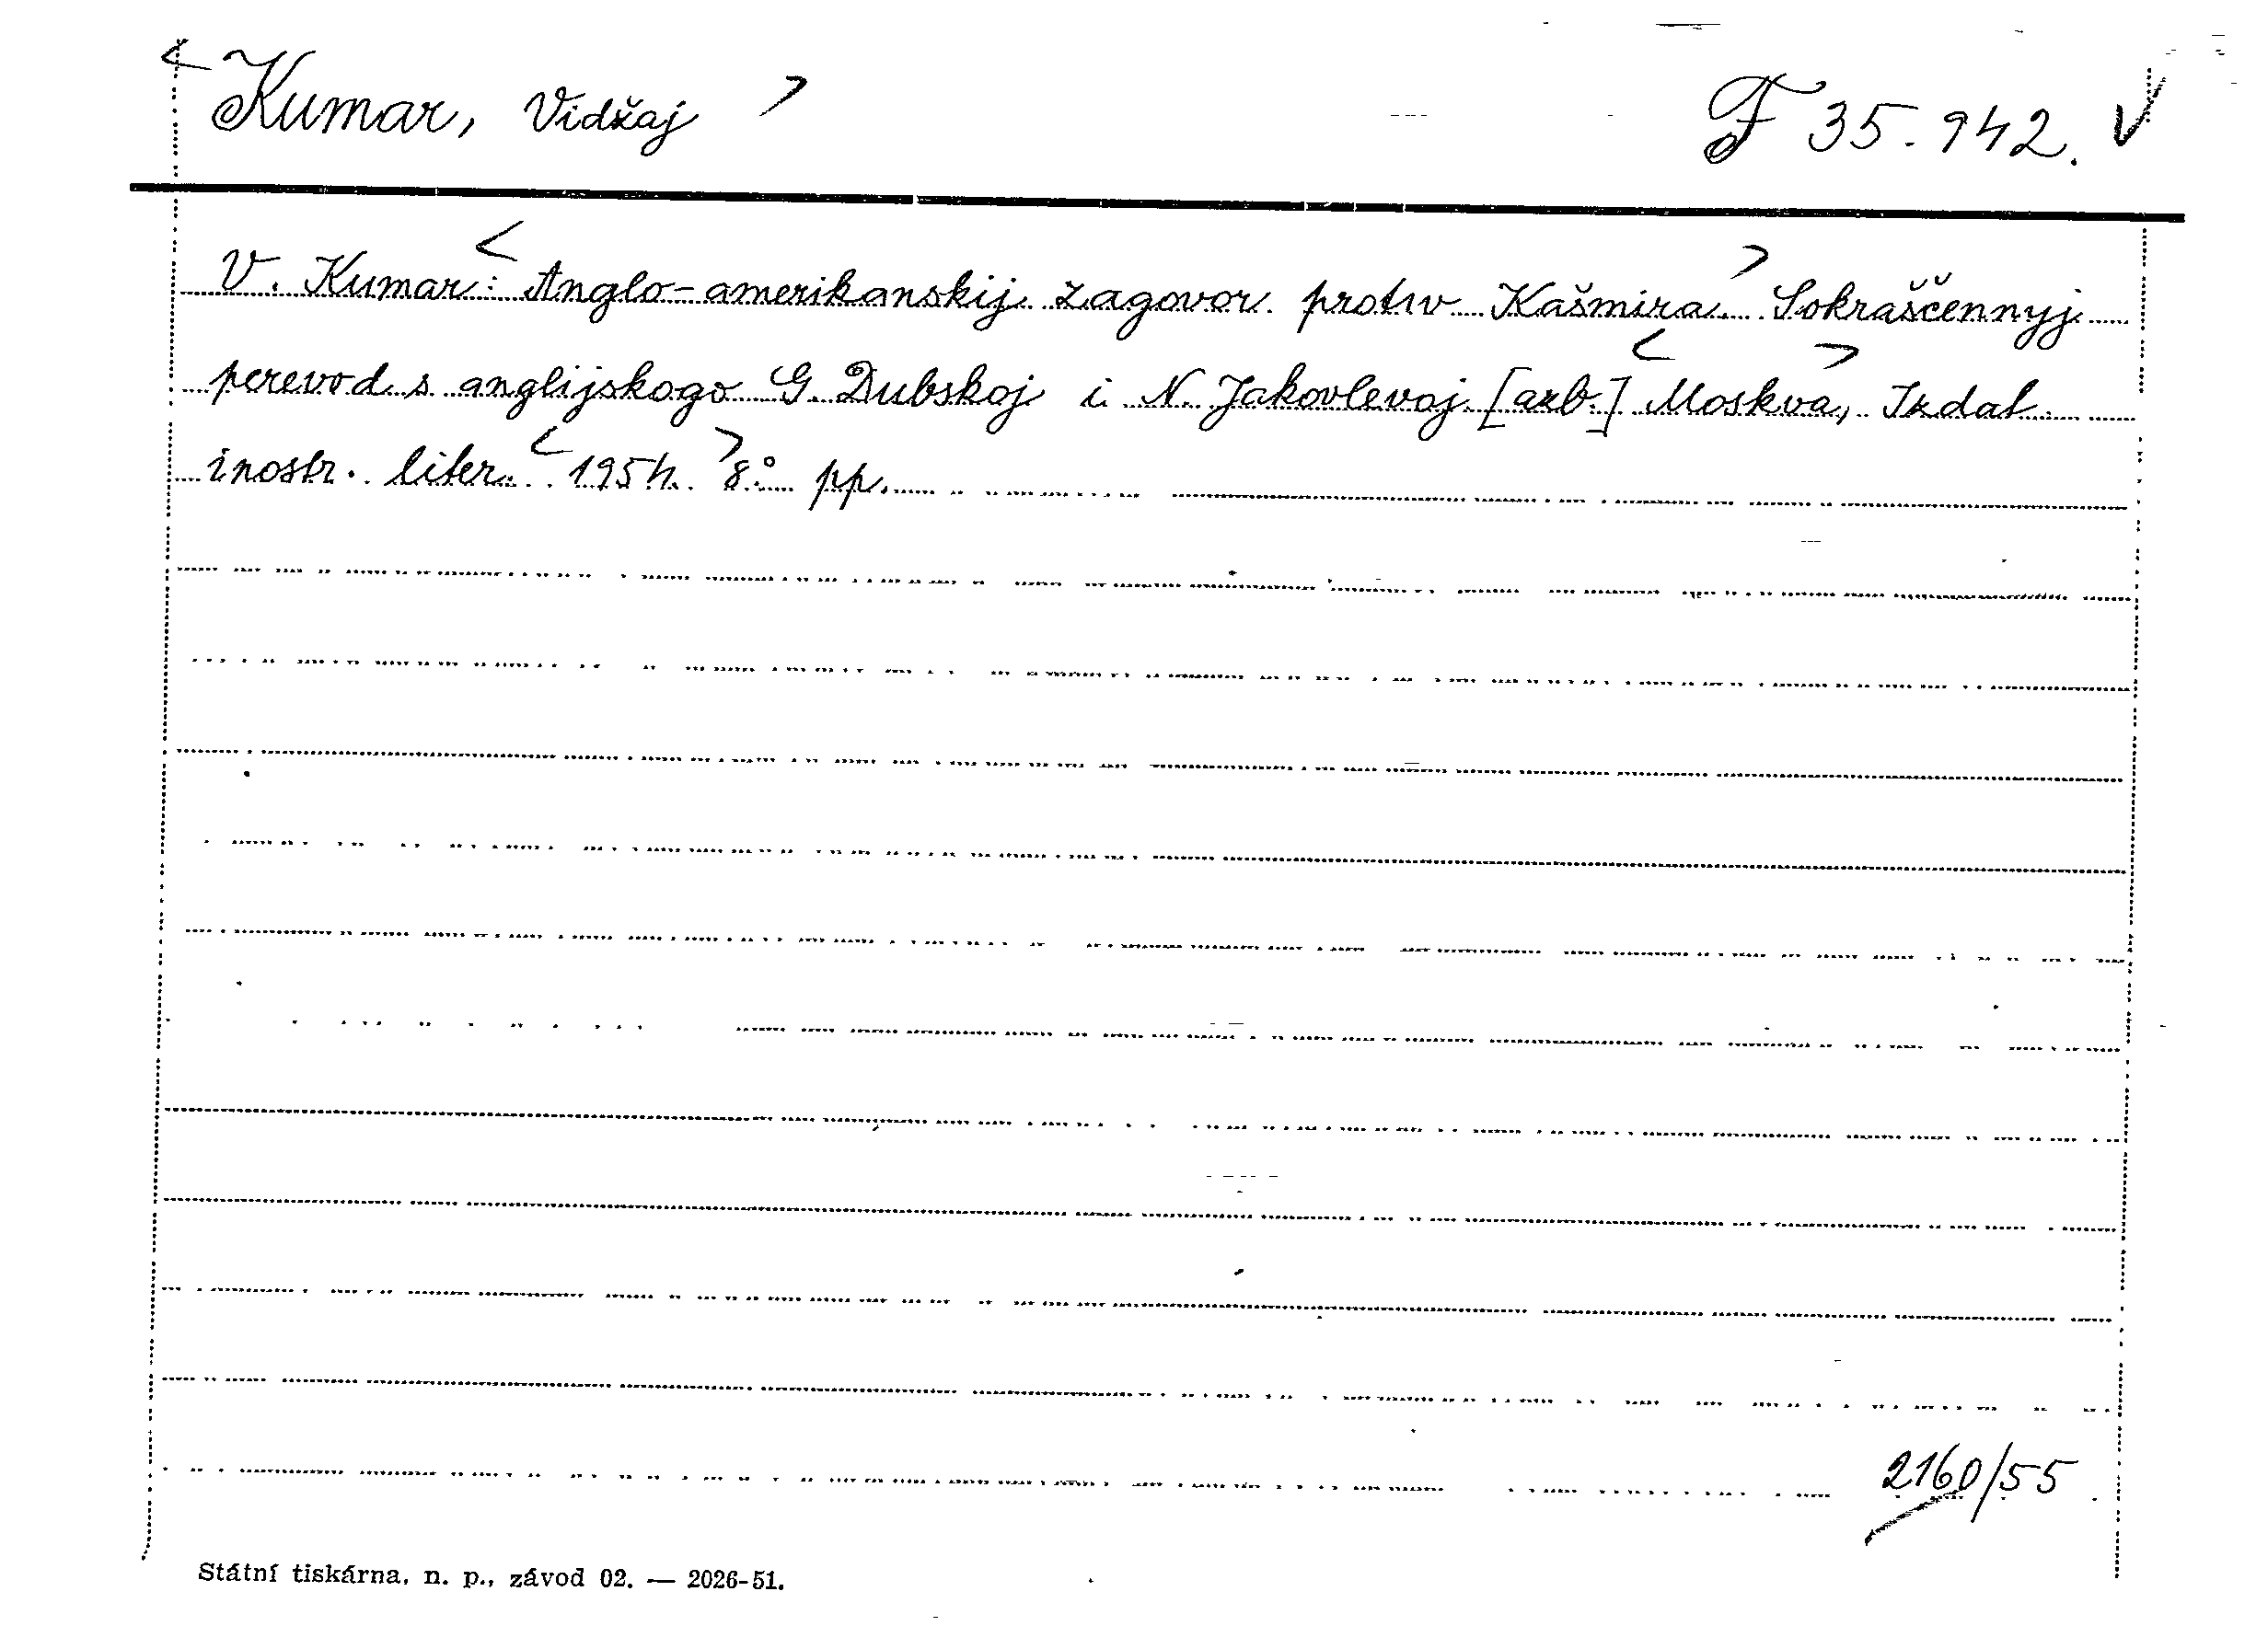 < Kumar, Vidžaj > F 35.942. V
V. Kumar: < Anglo-amerikanskij zagovor protiv Kašmira. > Sokraščennyj
perevod s anglijskogo G. Dubskoj i N. Jakovlevoj. [azb.] < Moskva, > Izdat.
inostr. liter. < 1954. > 8° pp.
2160/55
Státní tiskárna, n. p., závod 02. — 2026-51.